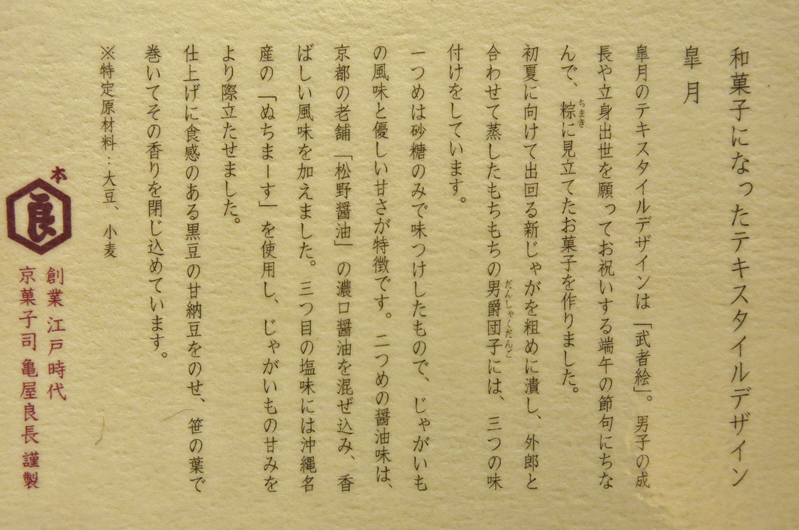 和菓子になったテキスタイルデザイン
皐月
皐月のテキスタイルデザインは「武者絵」。男子の成
長や立身出世を願ってお祝いする端午の節句にちな
んで、粽に見立てたお菓子を作りました。
ちまき
初夏に向けて出回る新じゃがを粗めに潰し、外郎と
合わせて蒸したもちもちの男爵団子には、三つの味
だんしゃくだんご
付けをしています。
一つめは砂糖のみで味つけしたもので、じゃがいも
の風味と優しい甘さが特徴です。二つめの醤油味は、
京都の老舗「松野醤油」の濃口醤油を混ぜ込み、香
ばしい風味を加えました。三つ目の塩味には沖縄名
産の「ぬちまーす」を使用し、じゃがいもの甘みを
より際立たせました。
仕上げに食感のある黒豆の甘納豆をのせ、笹の葉で
巻いてその香りを閉じ込めています。
※特定原材料：大豆、小麦
本
良
創業 江戸時代
京菓子司 亀屋良長 謹製